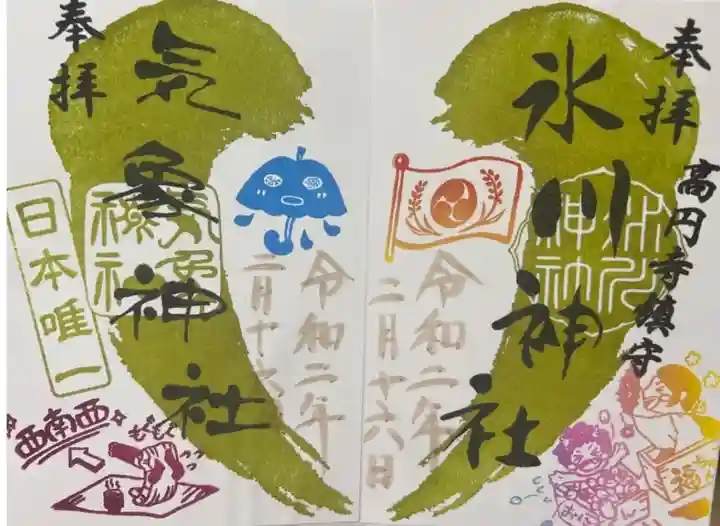 奉拝
高円寺鎮守
氷川神社
氷川神社
令和二年
二月十六日
福
奉拝
気象神社
気象神社
日本唯一
令和二年
二月十六
西南西
もぐもぐ